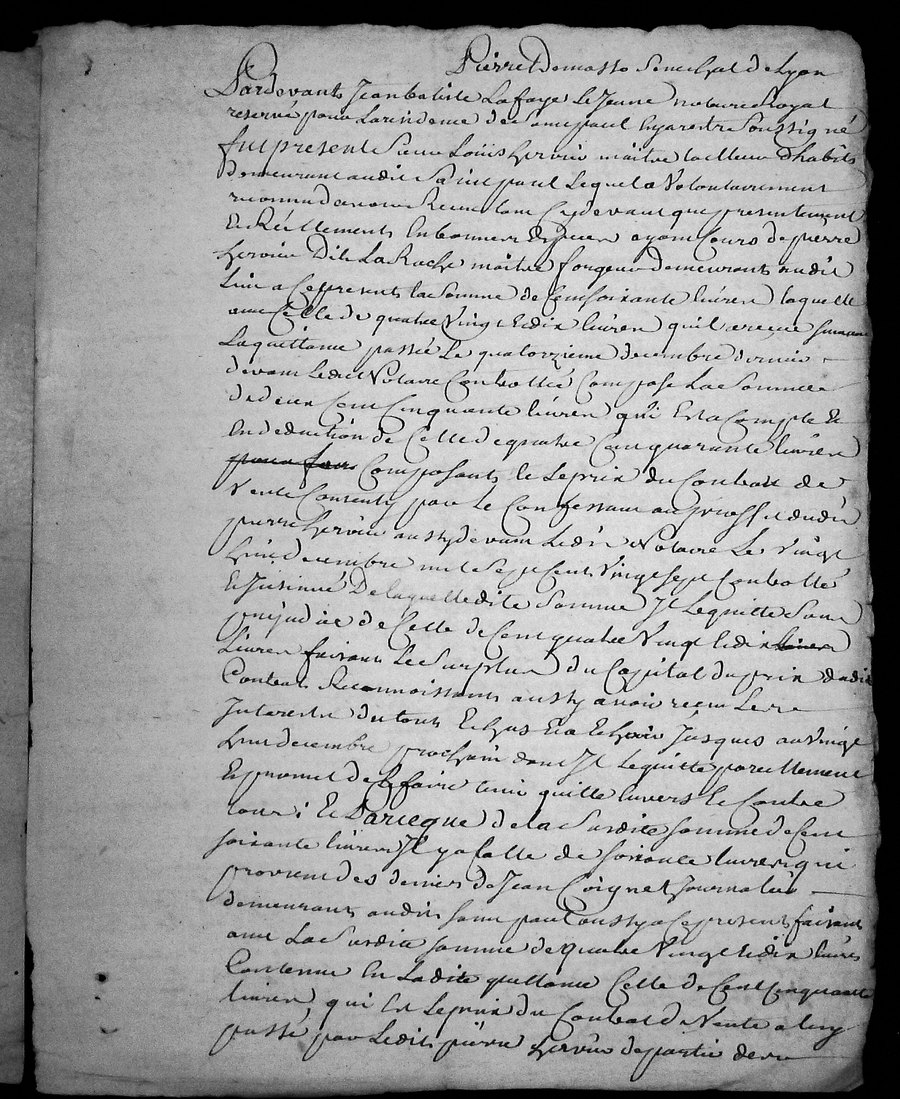 Pierre Demasso Senechal de Lyon
Pardevant Jean batiste Lafaye Le Jeune notaire Royal
reservé pour La residence de Saint paul En jarest Soussigné
fut present Sieur Loüis hervier maitre tailleur d'habits
demeurant audit Saint paul Lequel a Volontairement
reconnu davoir Receu tant Cydevant que presentement
Et Réellements En bonnes Especes ayant Cours de pierre
hervier Dit La Roche maitre forgeur demeurants audit
Lieu a Ce presents La Somme de Cent soixante livres laquelle
avec Celle de quatre Vingt et dix livres quil a reçue suivant
La quittance passée Le quatorzieme decembre dernier
devant Ledit Notaire Controllée Compose La Somme
de deux Cent Cinquante livres qui Est a Compte Et
En deduction de Celle de quatre Cent quarante livres
Composants le prix du Contrat de
Vente Consenty par Le Confessant au proffit dudit
pierre hervier aussy devant Ledit Notaire Le Vingt
huit decembre mil Sept Cent Vingt Sept Controllé
Et Insinué De laquelle dite Somme Il Le quitte Sans
prejudice de Celle de Cent quatre Vingt et dix
Livres faisant Le Surplus du Capital du prix dudit
Contrat Reconnoissants aussy avoir receu Les
Interests du tout Echus Et a Echoir Jusques au Vingt
huit decembre prochain dont Il Le quitte pareillement
Et promet de Le faire tenir quitte Envers Et Contre
tous; Et Parceque de la Susdite somme de Cent
soixante livres Il y a Celle de soixante livres qui
provient des deniers de Jean Coignet Journalier
demeurants audit Saint paul aussy a Ce present faisant
avec La Susdite somme de quatre Vingt et dix livres
Contenue En Ladite quittance Celle de Cent Cinquante
livres qui Est Le prix du Contrat de Vente a luy
passé par Ledit pierre hervier de partie des